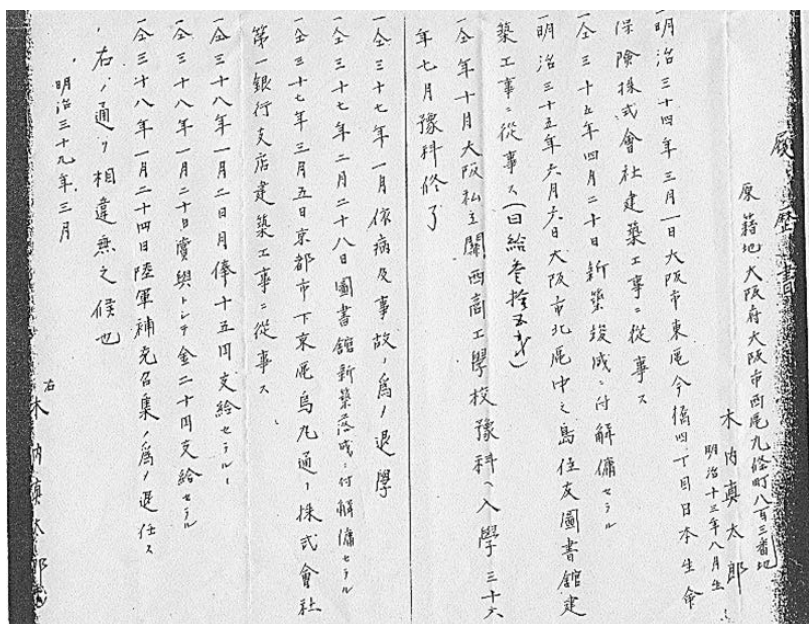 履歴書
原籍地 大阪府大阪市西區九條町八百三番地
木内真太郎
明治十三年八月生
一明治三十四年三月一日大阪市東區今橋四丁目日本生命
保険株式會社建築工事ニ從事ス
一仝三十五年四月二十日新築竣成ニ付解傭セラル
一明治三十五年六月六日大阪市北區中之島住友圖書館建
築工事ニ從事ス(日給参拾五戋)
一仝年十月大阪私立關西商工學校豫科ヘ入學三十六
年七月豫科修了
一仝三十七年一月依病及事故ノ爲メ退學
一仝三十七年二月二十八日圖書館新築落成ニ付解傭セラル
一仝三十七年三月五日京都市下京區烏丸通リ株式會社
第一銀行支店建築工事ニ從事ス
一仝三十八年一月二日月俸十五円支給セラル
一仝三十八年一月二十日賞與トシテ金二十円支給セラル
一仝三十八年一月二十四日陸軍補充召集ノ爲メ退任ス
右ノ通リ相違無之候也
明治三十九年三月
右 木内真太郎